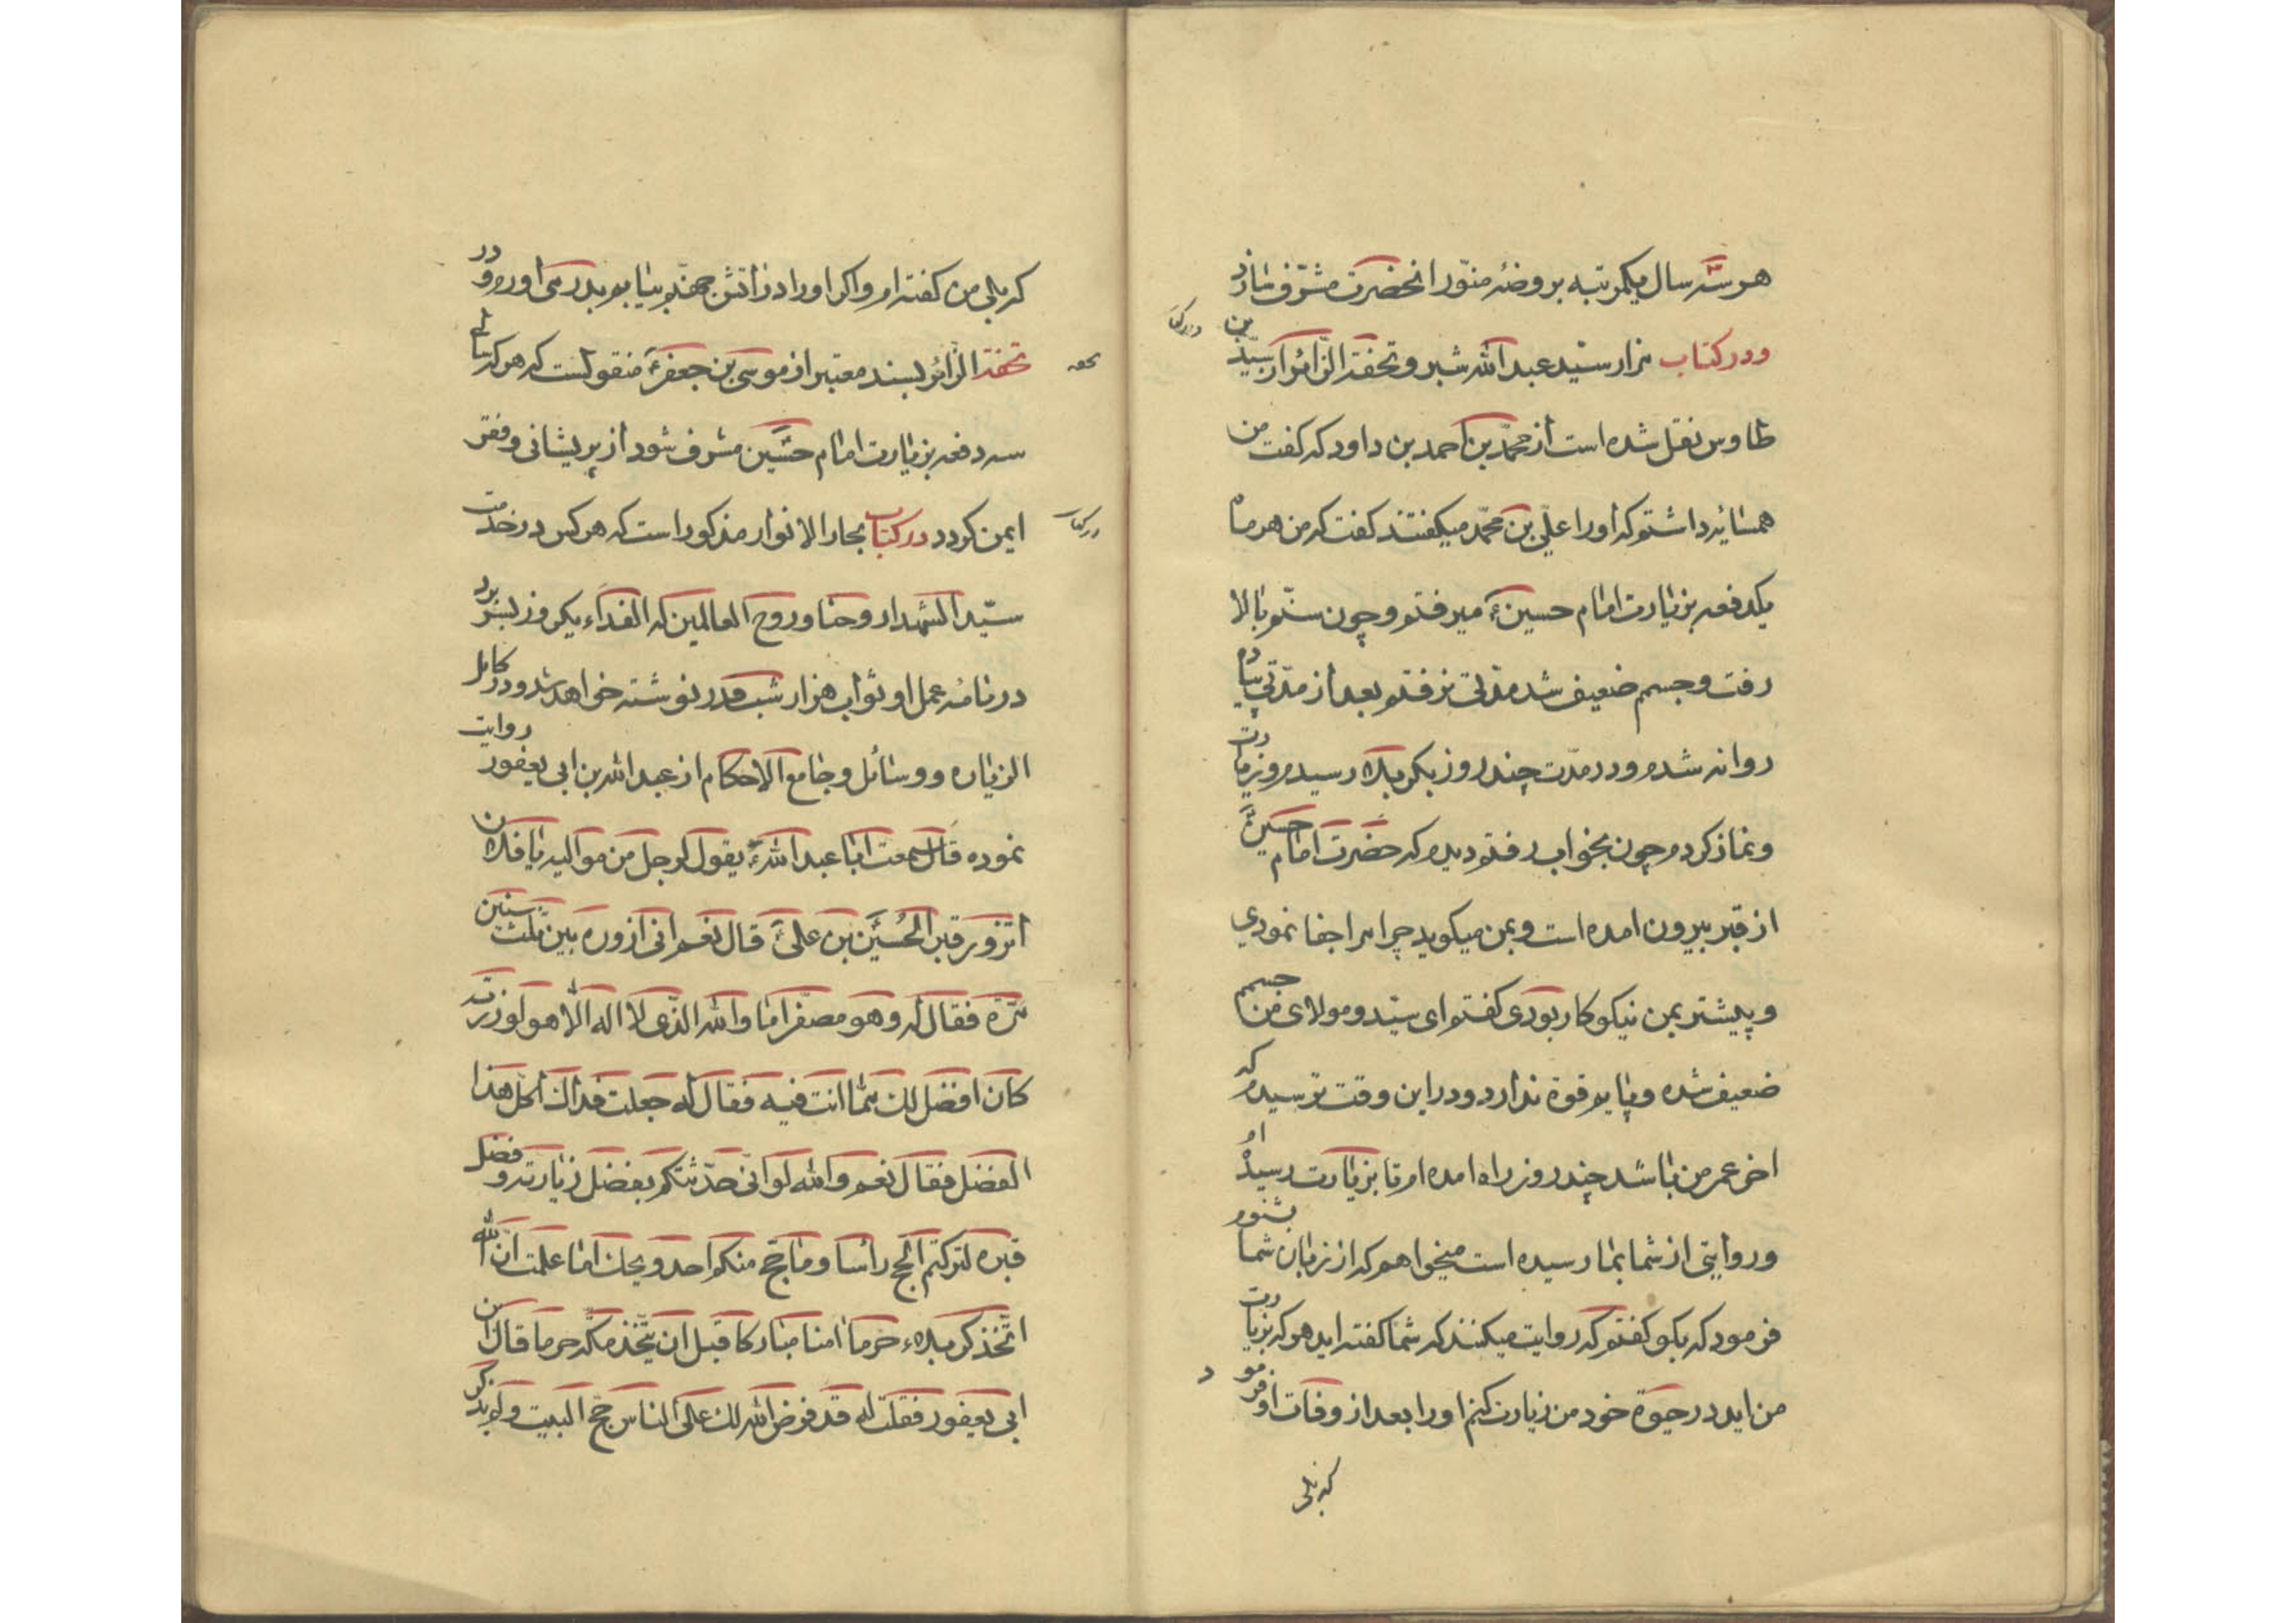 هر سه سال یکمرتبه بروضهٔ منوّر انحضرت مشرّف سازد
ودر کتاب مزار سیّد عبد الله شبر وتحفة الزائر از سیّد بن
طاوس نقل شده است از محمّد بن احمد بن داود که گفت من
همسایهٔ داشتم که اورا علیّ بن محمّد میگفتند گفت که من هر ماه
یکدفعه بزیارت امام حسینؑ میرفتم و چون سنّم بالا
رفت و جسم ضعیف شد مدّتی نرفتم بعد از مدّتی پیاده
روانه شدم ودر مدّت چند روز بکربلا رسیدم وزیارت
ونماز کردم چون بخواب رفتم دیدم که حضرت امام حسینؑ
از قبر بیرون امده است وبمن میگوید چرا مرا جفا نمودی
و پیشتر بمن نیکو کار بودی گفتم ای سیّد و مولای من جسمم
ضعیف شده و پایم قوة ندارد ودر این وقت ترسیدم که
اخر عمر من باشد چند روز راه امده ام تا بزیارت رسیده ام
وروایتی از شما بما رسیده است میخواهم که از زبان شما بشنوم
فرمود که بگو گفتم که روایت میکنند که شما گفته اید هر که بزیارت
من اید در حیوة خود من زیارت کنم اورا بعد از وفات او فرمود
که بلی
که بلی من گفته ام واگر اورا در اتش جهنّم بیابم بدر می اورم ودر
تحفة الزائر بسند معتبر از موسی بن جعفرؑ منقولست که هر که تا
سه دفعه بزیارت امام حسین مشرف شود از پریشانی وفقر
ایمن گردد در کتاب بحار الانوار مذکور است که هر کس در خدمت
سیّد الشهدا روحنا وروح العالمین له الفداء یکروز بسر برد
در نامهٔ عمل او ثواب هزار شب قدر نوشته خواهد شد ودر کامل
الزیاره ووسائل وجامع الاحکام از عبد الله بن ابی یعفور روایت
نموده قال سمعت ابا عبد اللهؑ یقول لرجل من موالیه یا فلان
اتزور قبر الحُسَین بن علیؑ قال نعم انی ازوره بین ثلث سنین
مرّة فقال له وهو مصفّر اما والله الّذی لا اله الّا هو لو زرته
کان افضل لک ممّا انت فیه فقال له جعلت فداک اکلّ هذا
الفضل فقال نعم والله لو انّی حدّثتکم بفضل زیارته وفضل
قبره لترکتم الحجّ رأسا وما حجّ منکم احد ویحک اما علمت انّ الله
اتّخذ کربلاء حرما امنا مبارکا قبل ان یتّخذ مکّه حرما قال ابن
ابی یعفور فقلت له قد فرض الله لک علی الناس حجّ البیت ولم یذکر